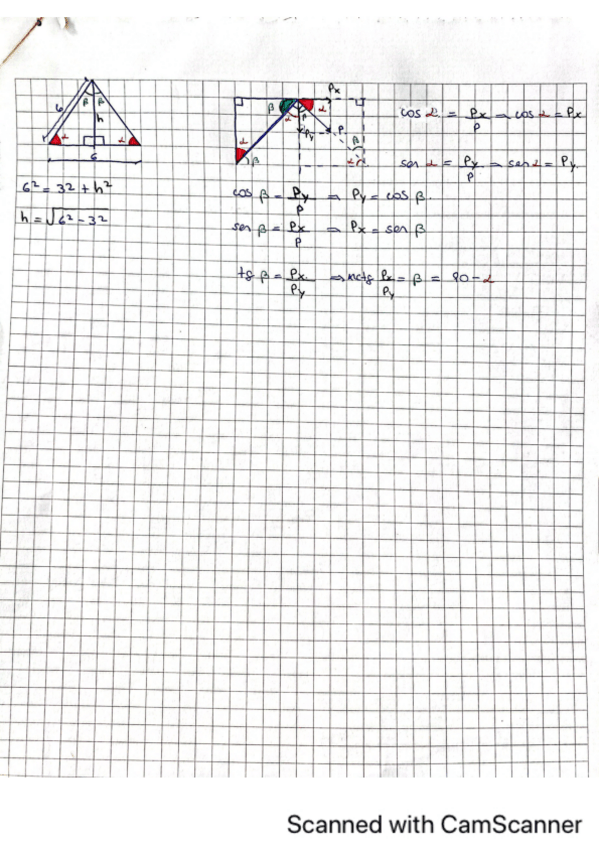 6
β β
h
α α
6
6² = 32 + h²
h = √6² - 32
Px
β α β α
Py P
α β β α
cos α = Px/P ⇒ cos α = Px
sen α = Py/P ⇒ sen α = Py
cos β = Py/P ⇒ Py = cos β.
sen β = Px/P ⇒ Px = sen β
tg β = Px/Py ⇒ arctg Px/Py = β = 90 - α
Scanned with CamScanner